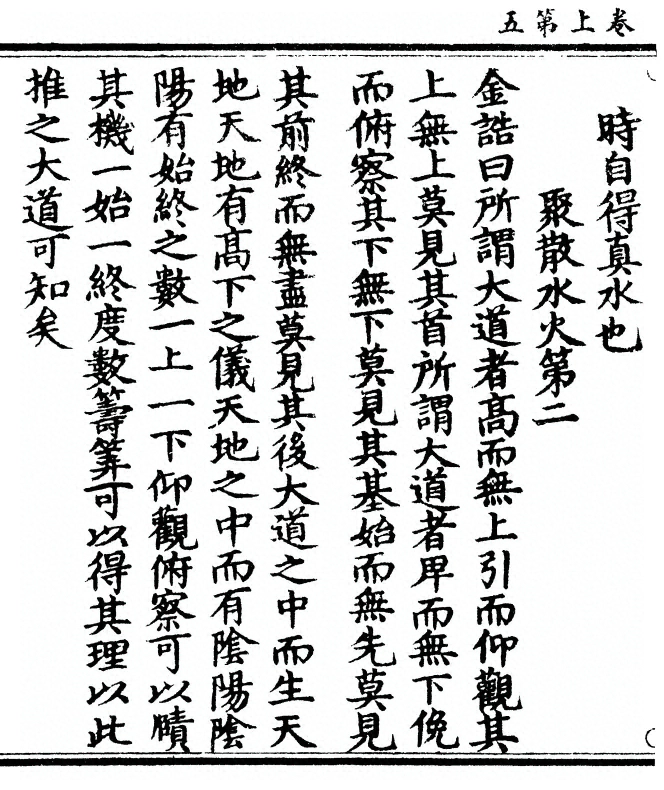 卷上第五
時自得真水也
聚散水火第二
金誥曰所謂大道者高而無上引而仰觀其
上無上莫見其首所謂大道者卑而無下俛
而俯察其下無下莫見其基始而無先莫見
其前終而無盡莫見其後大道之中而生天
地天地有高下之儀天地之中而有陰陽陰
陽有始終之數一上一下仰觀俯察可以賾
其機一始一終度數籌筭可以得其理以此
推之大道可知矣